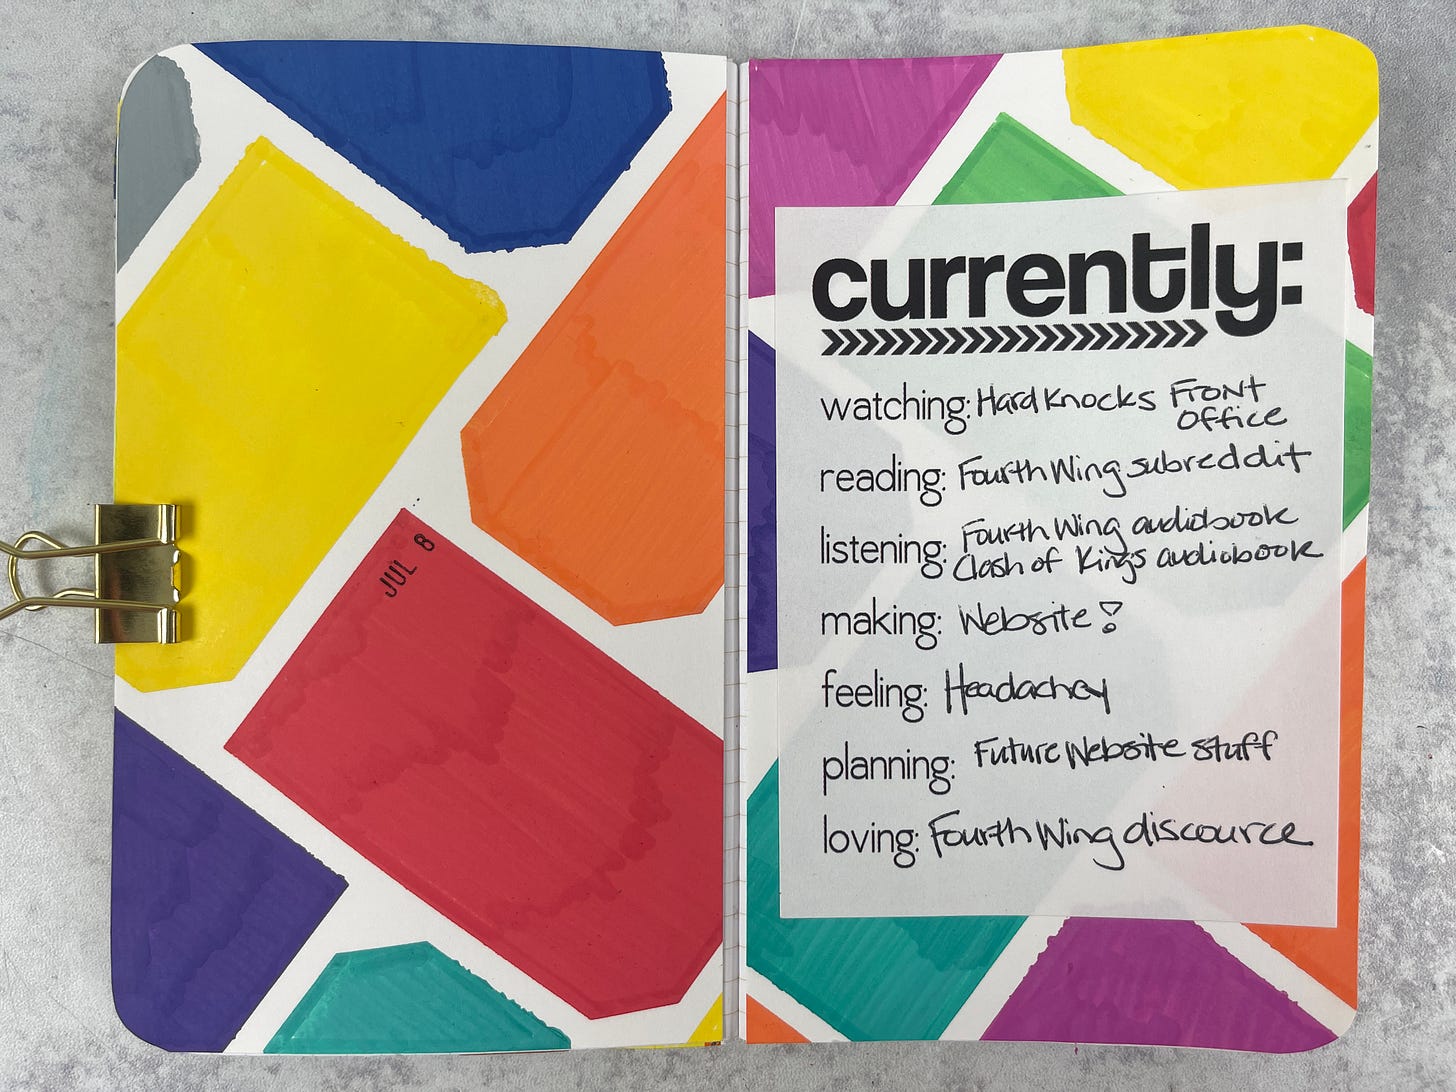 JUL 8
currently:
watching: Hard Knocks Front
Office
reading: Fourth Wing subreddit
listening: Fourth Wing audiobook
Clash of Kings audiobook
making: Website!
feeling: Headachey
planning: Future Website stuff
loving: Fourth Wing discource